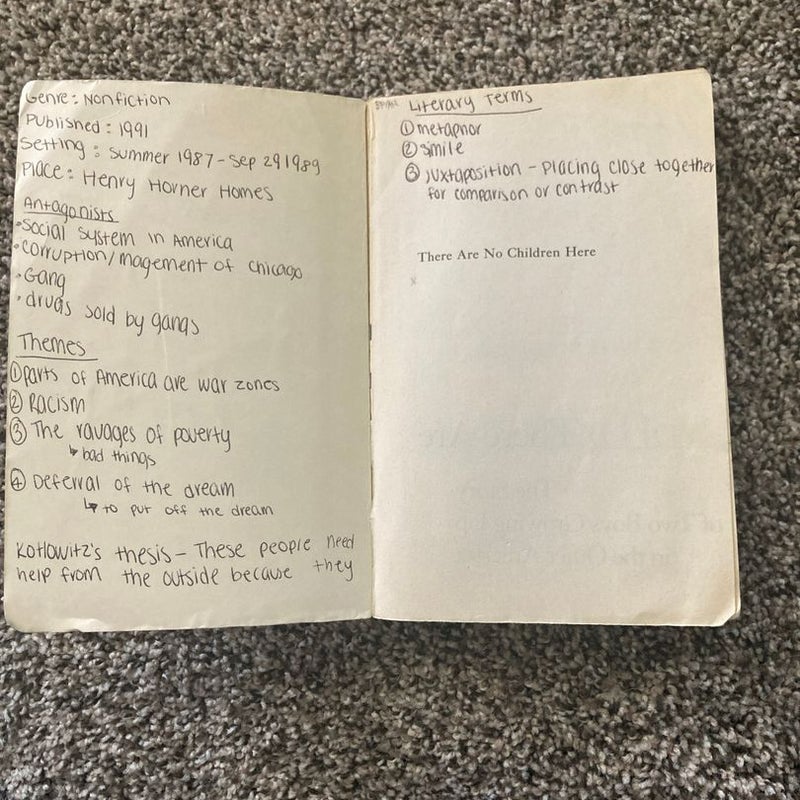 Genre: Nonfiction
Published: 1991
Setting: Summer 1987 - Sep 29 1989
Place: Henry Horner Homes
Antagonists
• Social System in America
• Corruption/magement of Chicago
• Gang
• drugs sold by gangs
Themes
① Parts of America are war zones
② Racism
③ The ravages of poverty
↳ bad things
④ Deferral of the dream
↳ to put off the dream
Kotlowitz's thesis - These people need
help from the outside because they
Literary Terms
① metaphor
② simile
③ juxtaposition - placing close together
for comparison or contrast
There Are No Children Here